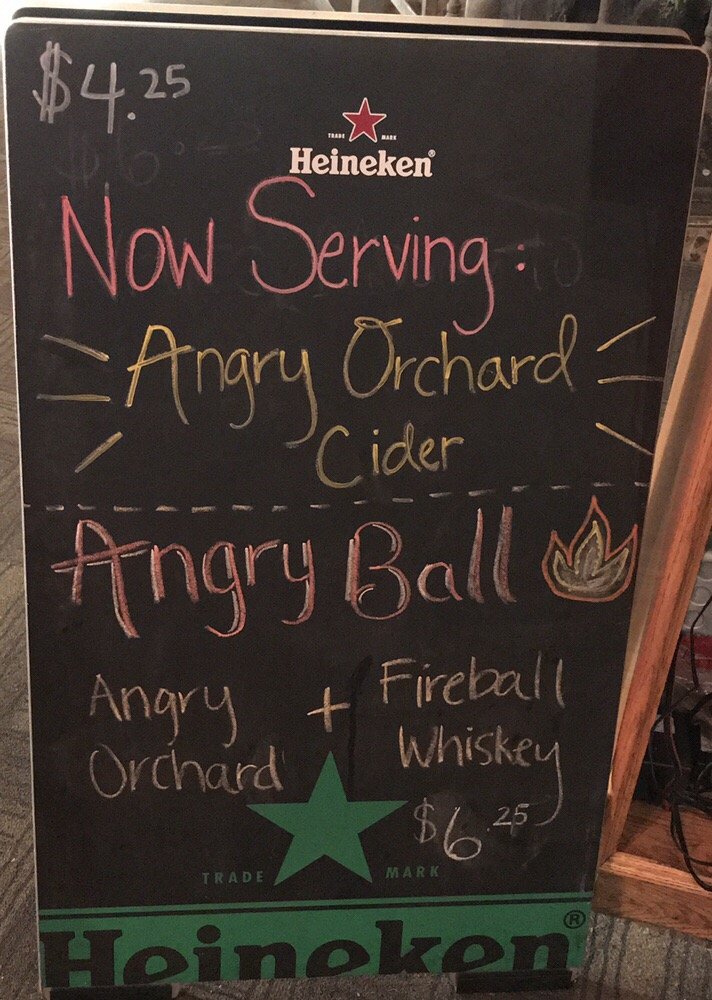 $4.25
TRADE MARK
Heineken®
Now Serving:
Angry Orchard
Cider
Angry Ball
Angry + Fireball
Orchard Whiskey
$6.25
TRADE MARK
Heineken®